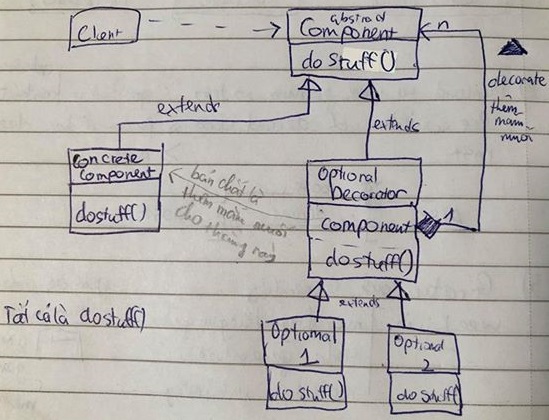 Client
abstract
Component
do stuff()
n
decorate
thêm
mắm
muối
extends
extends
Concrete
Component
dostuff()
bản chất là
thêm mắm muối
cho thằng này
Optional
Decorator
component
dostuff()
1
Tất cả là dostuff()
extends
Optional
1
do stuff()
Optional
2
do stuff()